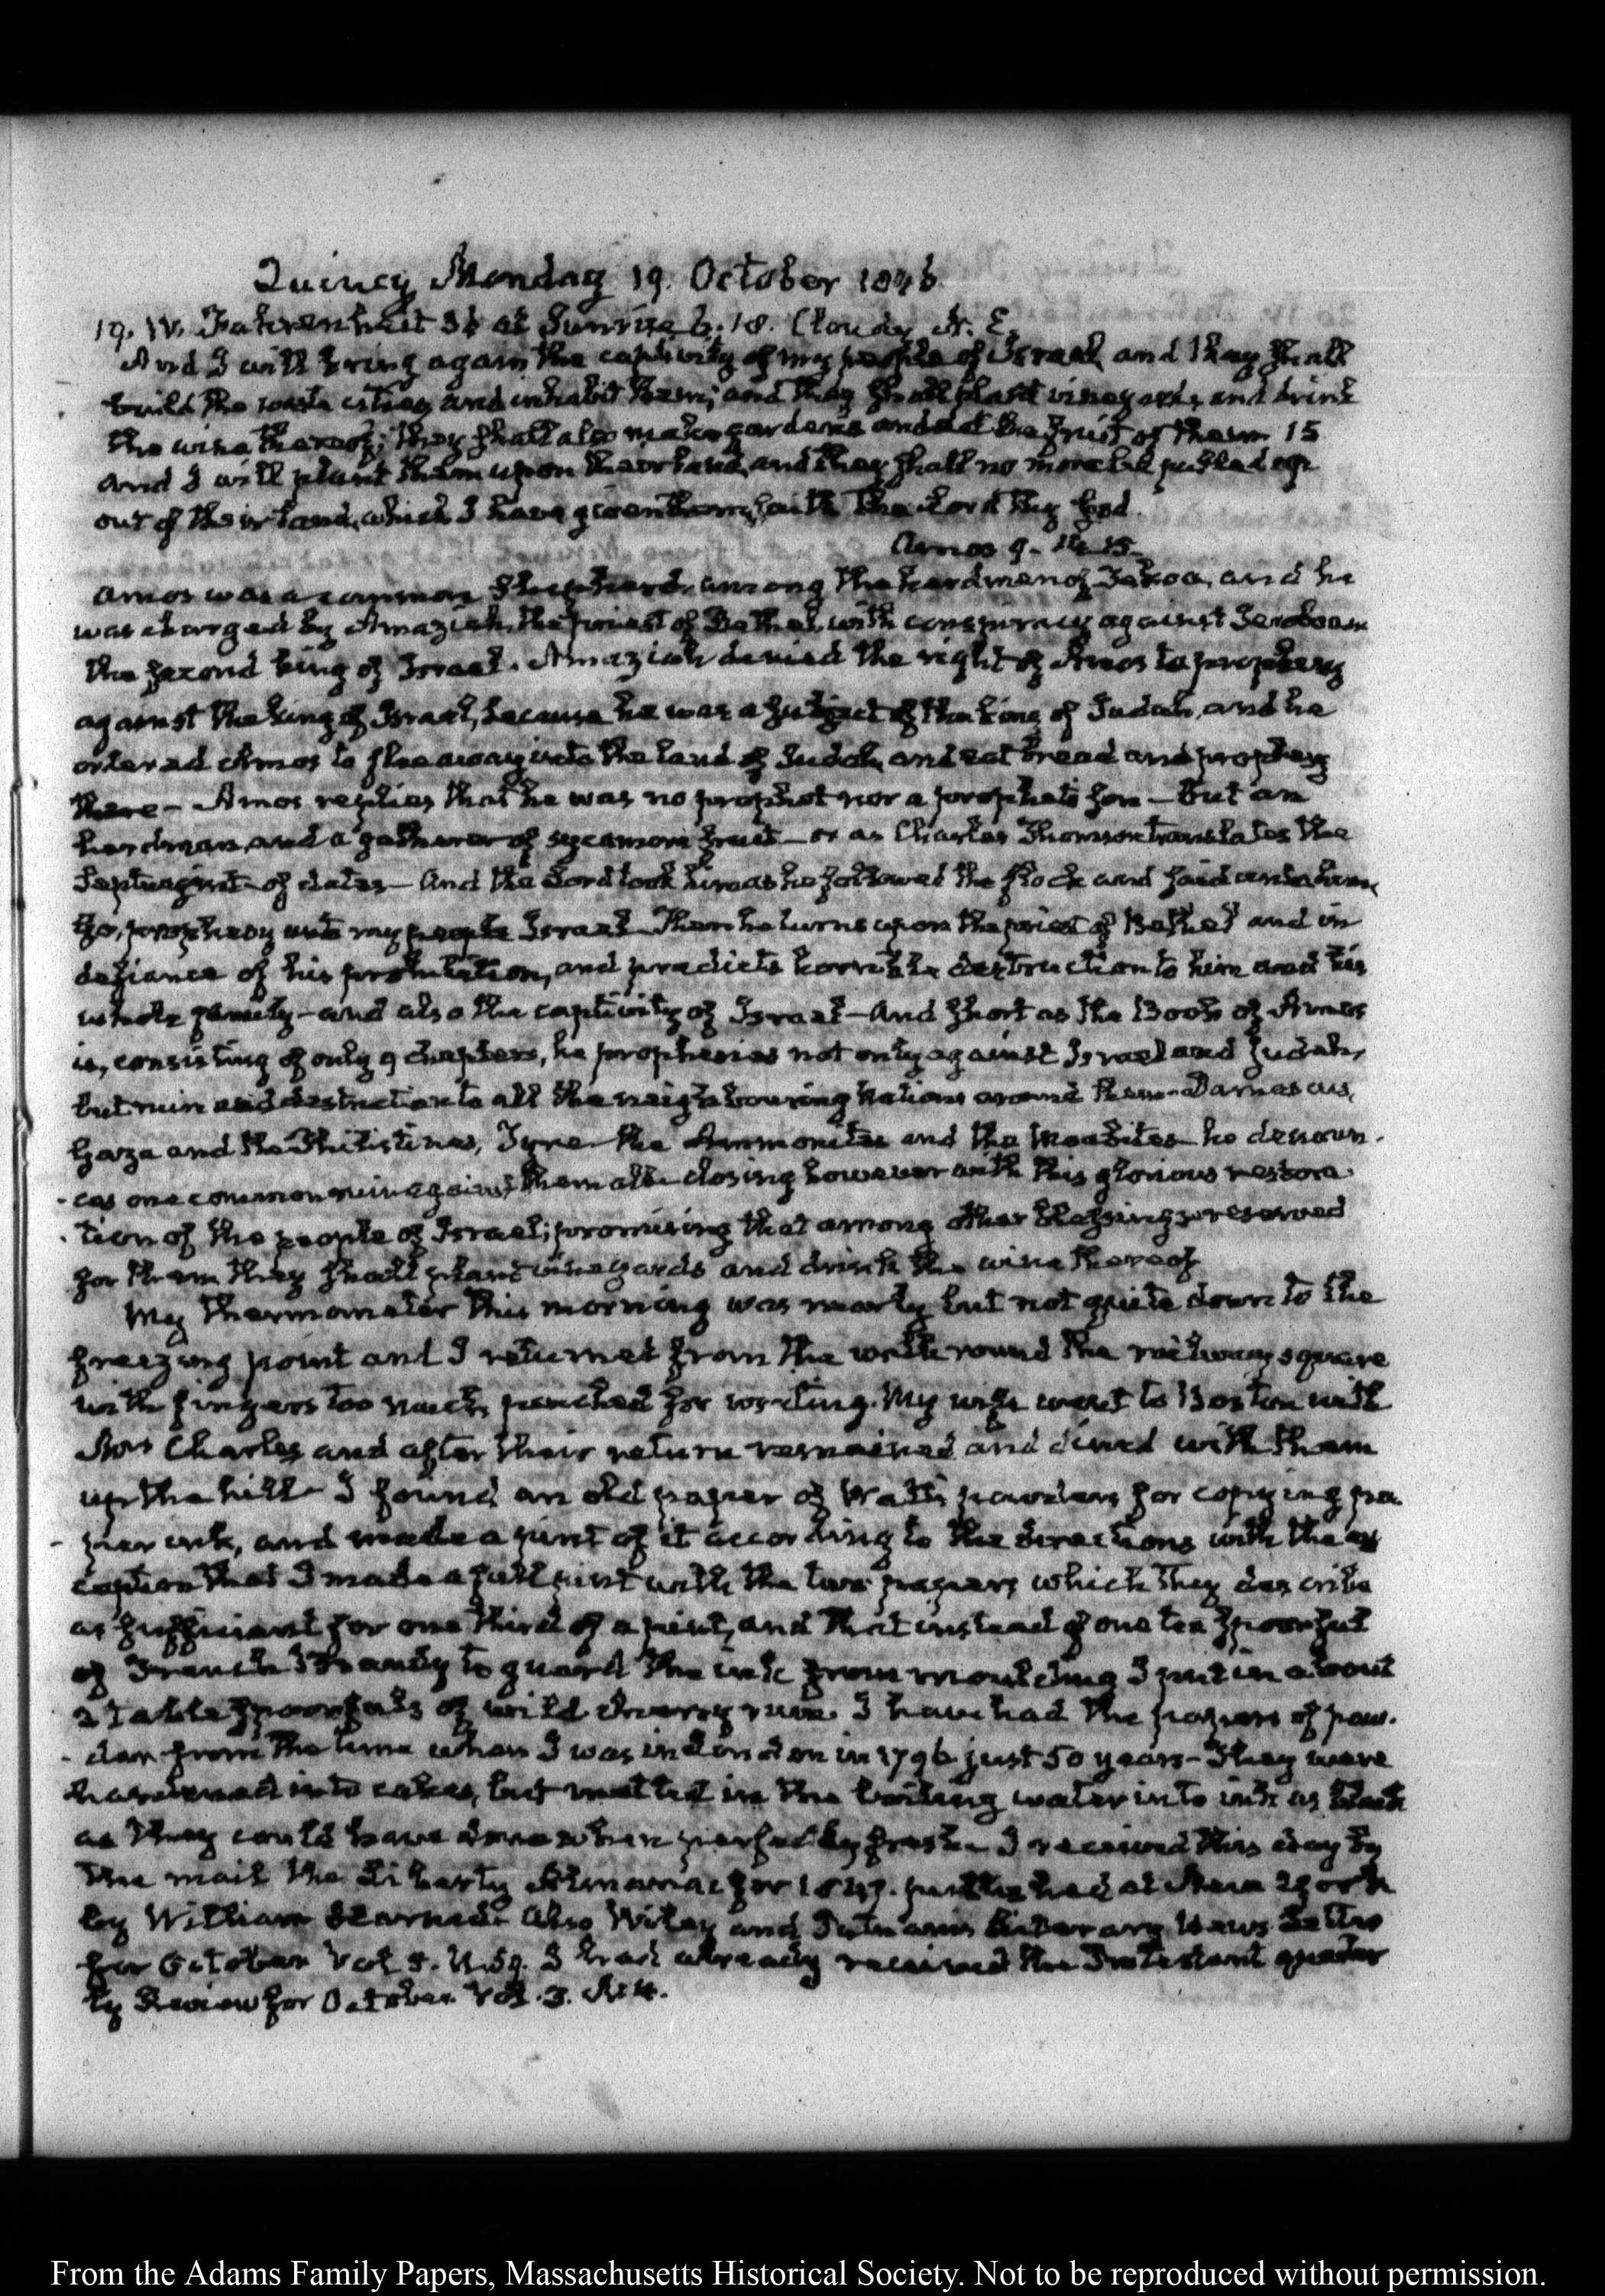 Quincy Monday 19. October 1846.
19. IV. Fahrenheit 36 at Sunrise 6.18. Cloudy N. E.
And I will bring again the captivity of my people of Israel, and they shall
build the waste cities and inhabit them; and they shall plant vineyards, and drink
the wine thereof; they shall also make gardens and eat the fruit of them 15
And I will plant them upon their land, and they shall no more be pulled up
out of their land, which I have given them, saith the Lord thy God.
Amos 9. 14. 15.
Amos was a common Shepherd, among the herdmen of Tekoa, and he
was charged by Amaziah, the priest of Bethel, with conspiracy against Jeroboam
the second king of Israel. Amaziah denied the right of Amos to prophesy
against the king of Israel, because he was a subject of the king of Judah, and he
ordered Amos to flee away into the land of Judah, and eat bread and prophesy
there— Amos replies that he was no prophet nor a prophet's son— but an
herdman, and a gatherer of sycamore fruit— or as Charles Thomson translates the
Septuagint of dates— And the Lord took him as he followed the flock and said unto him,
Go, prophesy unto my people Israel— Then he turns upon the priest of Bethel and in
defiance of his prohibition, and predicts horrible destruction to him and his
whole family—and also the captivity of Israel—And short as the Book of Amos
is, consisting of only 9 chapters, he prophesies not only against Israel and Judah,
but ruin and destruction to all the neighbouring Nations around them—Damascus,
Gaza and the Philistines, Tyre the Ammonites and the Moabites he denoun-
-ces one common ruin against them all— closing however with this glorious restora-
-tion of the people of Israel; promising that among other blessings reserved
for them they shall plant vineyards and drink the wine thereof
My Thermometer this morning was nearly but not quite down to the
freezing point and I returned from the walk round the railway square
with fingers too much pinched for writing. My wife went to Boston with
Mrs Charles and after their return remained and dined with them
up the hill— I found an old paper of Watt's powders for copying pa-
-per ink, and made a pint of it according to the directions with the ex
ception that I made a full pint with the two papers which they describe
as sufficient for one third of a pint, and that instead of one tea spoonful
of French Brandy to guard the ink from moulding I put in about
2 table spoonfuls of wild cherry rum. I have had the papers of pow-
-der from the time when I was in London in 1796 just 50 years— They were
hardened into cakes, but melted in the boiling water into ink as black
as they could have done when perfectly fresh— I received this day by
the mail the Liberty Almanac for 1847. published at New York
by William Harned. Also Wiley and Putnam's Literary News Letter
for October Vol 5. N. 59. I had already received the Protestant quarter
ly Review for October. Vol. 3. N. 4.
From the Adams Family Papers, Massachusetts Historical Society. Not to be reproduced without permission.